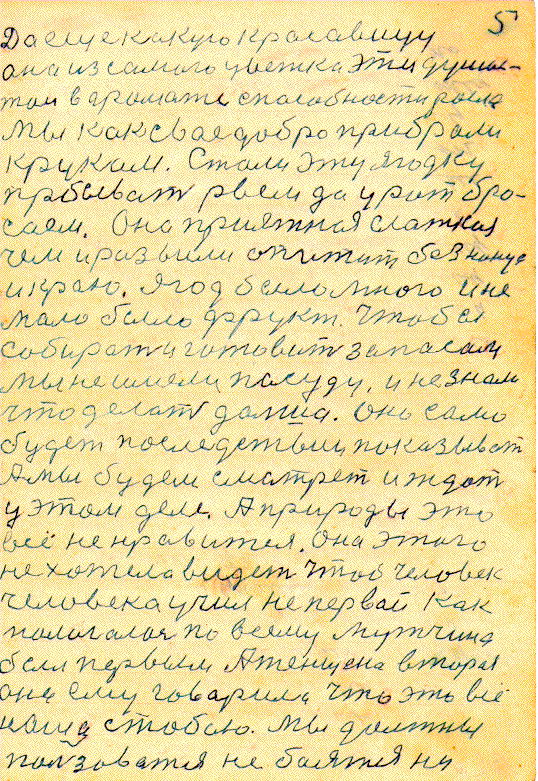 5
Да еще какую красавицу
она из самого цветка эти душис-
тои в аромати способности расла
Мы как свае добро прибрали
к рукам. Стали эту ягодку
прбыват рвем да у рот бро-
саем. Она приятная слаткая
чем и развили опитит без канца
и краю. Ягод было много и не
мало было фрукт. Чтобы
собират и готовит запасам
мы не имели пасуду, и не знали
что делат далша. Оно само
будет последствии показыват
А мы будем смотрет и ждат
у этом деле. А природы это
всё не нравится. Она этаго
не хотела видет чтоб человек
человека учил не первай как
палагалоя по всему мужчина
был первым А женщена вторая
она ему говарила что это всё
наша стобою. Мы должны
ползоватся не боятся ни